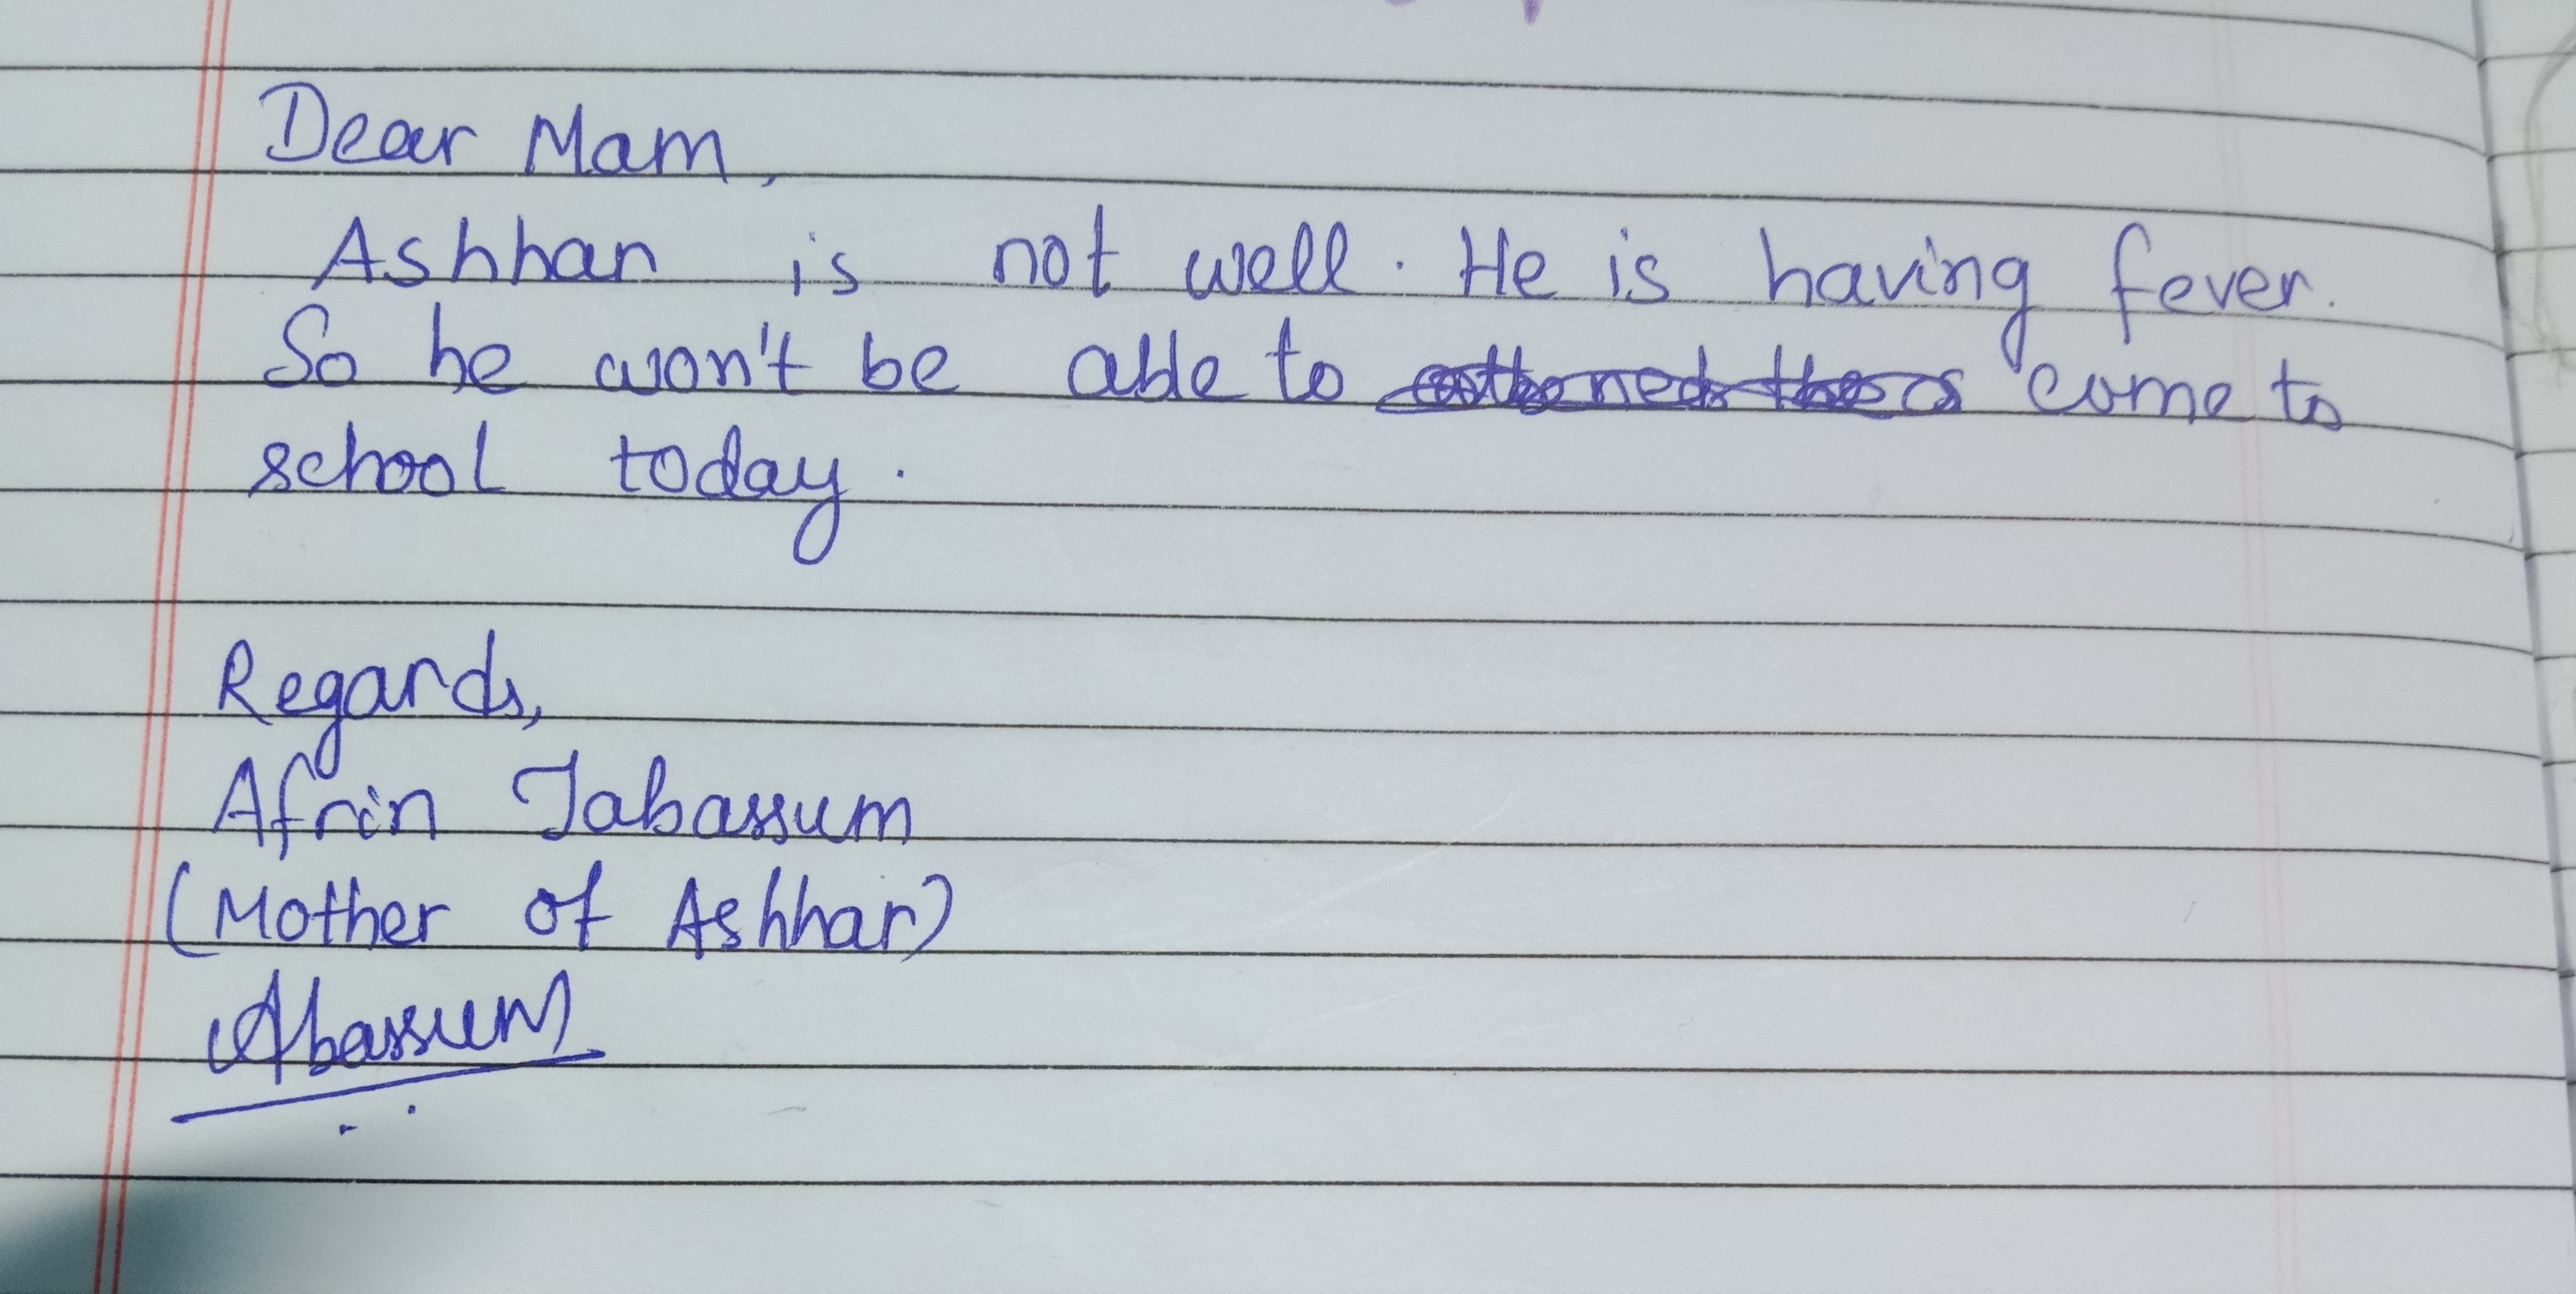 Dear Mam,
Ashhar is not well. He is having fever.
So he won't be able to come to
school today.
Regards,
Afrin Tabassum
(Mother of Ashhar)
Abassum